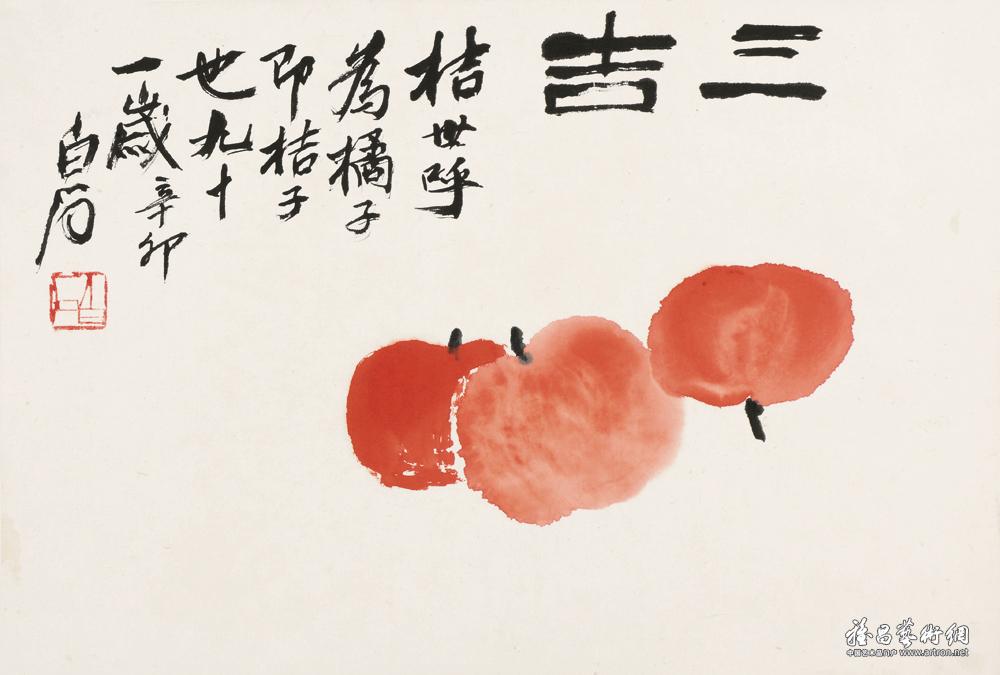 三吉
桔世呼
為橘子
即桔子
也九十
一歲辛卯
白石
雅昌藝術網
中国艺术品门户 www.artron.net